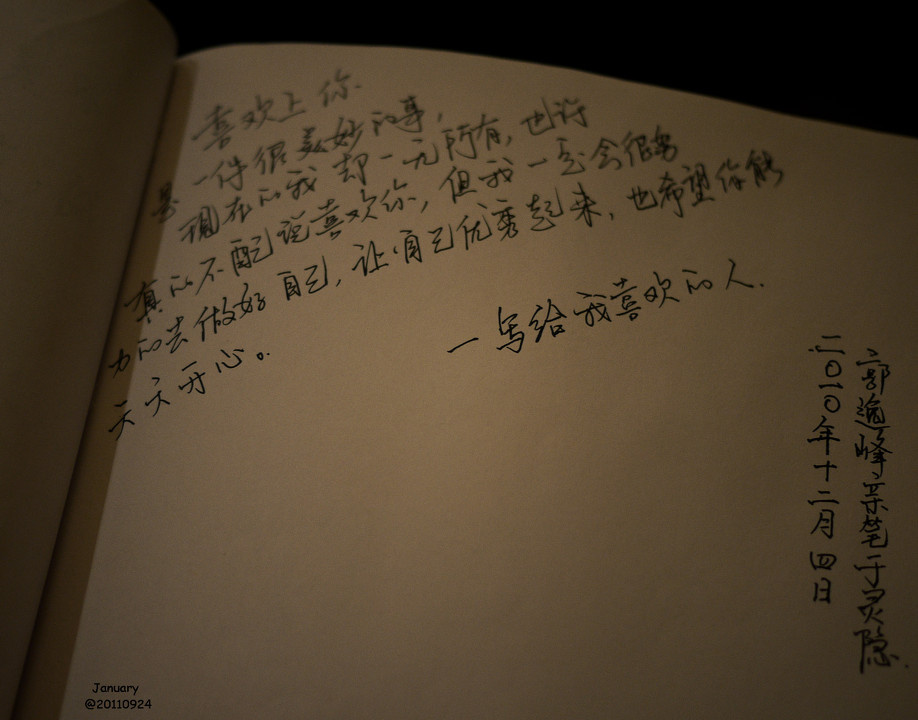 喜欢上你
是一件很美妙的事,
现在的我却一无所有,也许
真的不配说喜欢你,但我一定会很努
力的去做好自己,让自己优秀起来,也希望你能
天天开心。
—写给我喜欢的人.
郭逸峰亲笔于灵隐.
二〇一〇年十二月四日
January
@20110924